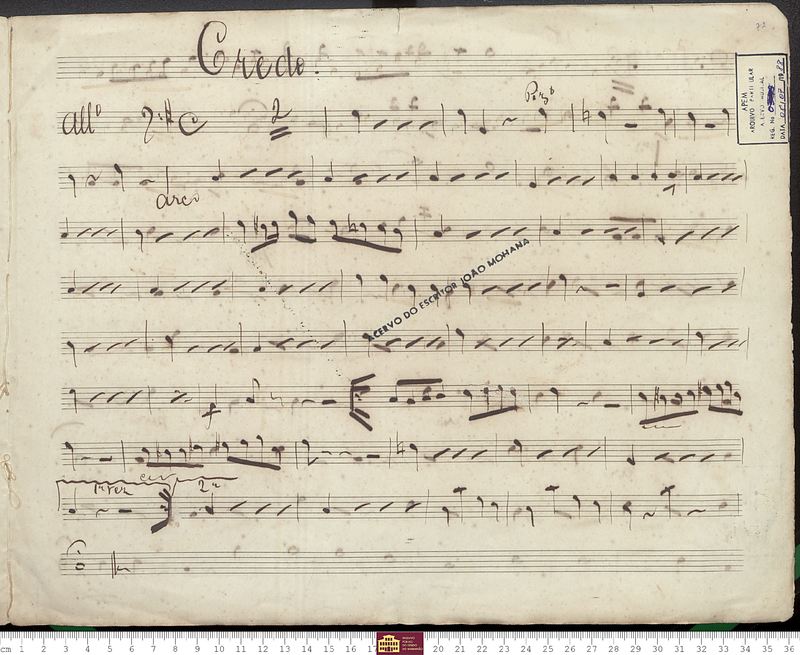 Credo.
APEM
ARQUIVO PARTICULAR
REG. No
DATA
All.º
2
arco
ACERVO DO ESCRITOR JOÃO MOHANA
f
1ª vez
2ª
cm 1 2 3 4 5 6 7 8 9 10 11 12 13 14 15 16 17 20 21 22 23 24 25 26 27 28 29 30 31 32 33 34 35 36